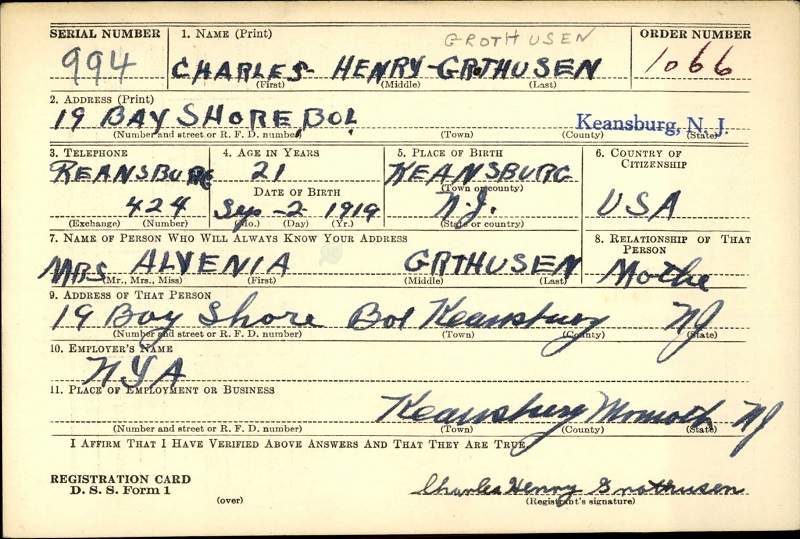 SERIAL NUMBER 1. NAME (Print) GROTHUSEN ORDER NUMBER
994 CHARLES HENRY GRTHUSEN 1066
(First) (Middle) (Last)
2. ADDRESS (Print)
19 BAY SHORE BOL Keansburg, N. J.
(Number and street or R. F. D. number) (Town) (County) (State)
3. TELEPHONE 4. AGE IN YEARS 5. PLACE OF BIRTH 6. COUNTRY OF CITIZENSHIP
KEANSBURG 21 KEANSBURG
DATE OF BIRTH (Town or county)
424 Sep-2-1919 N.J. USA
(Exchange) (Number) (Mo.) (Day) (Yr.) (State or country)
7. NAME OF PERSON WHO WILL ALWAYS KNOW YOUR ADDRESS 8. RELATIONSHIP OF THAT PERSON
MRS ALVENIA GRTHUSEN Mothe
(Mr., Mrs., Miss) (First) (Middle) (Last)
9. ADDRESS OF THAT PERSON
19 Bay Shore Bol Keansburg NJ
(Number and street or R. F. D. number) (Town) (County) (State)
10. EMPLOYER'S NAME
NYA
11. PLACE OF EMPLOYMENT OR BUSINESS
Keansburg Momoth NJ
(Number and street or R. F. D. number) (Town) (County) (State)
I AFFIRM THAT I HAVE VERIFIED ABOVE ANSWERS AND THAT THEY ARE TRUE.
REGISTRATION CARD
D. S. S. Form 1 Charles Henry Grothusen
(over) (Registrant's signature)